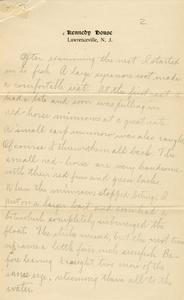 2
Kennedy House
Lawrenceville, N. J.
After examining the nest I started
in to fish. A large sycamore root made
a comfortable seat. At the first cast I
had a bite and soon was pulling in
red-horse minnows at a great rate.
A small carp minnow was also caught
Of course I threw them all back. The
small red-horse are very handsome
with their red fins and green backs.
When the minnows stopped biting I
put on a larger bait and soon had a
bite which completely submerged the
float. The strike missed, but the next time
a little fair sized sunfish. Be-
fore leaving I caught two more of the
same size, returning them all to the
water.